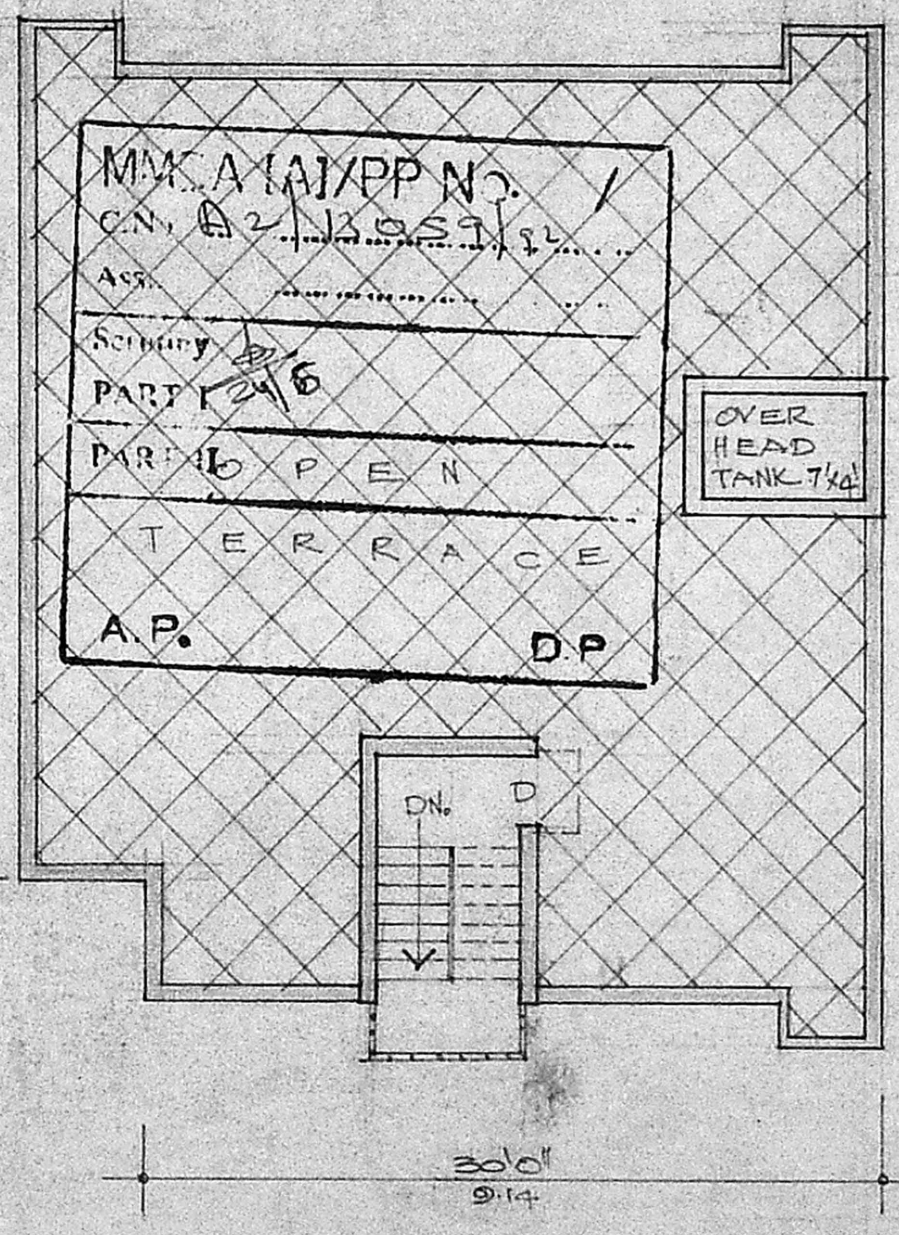 MMDA [A]/PP No. /
C.No A2/13059/92
Ass.
Scrutiny
PART I 24/6
PART II
OPEN
TERRACE
A.P. D.P
OVER
HEAD
TANK 7'x4'
DN.
D
30'0"
9.14